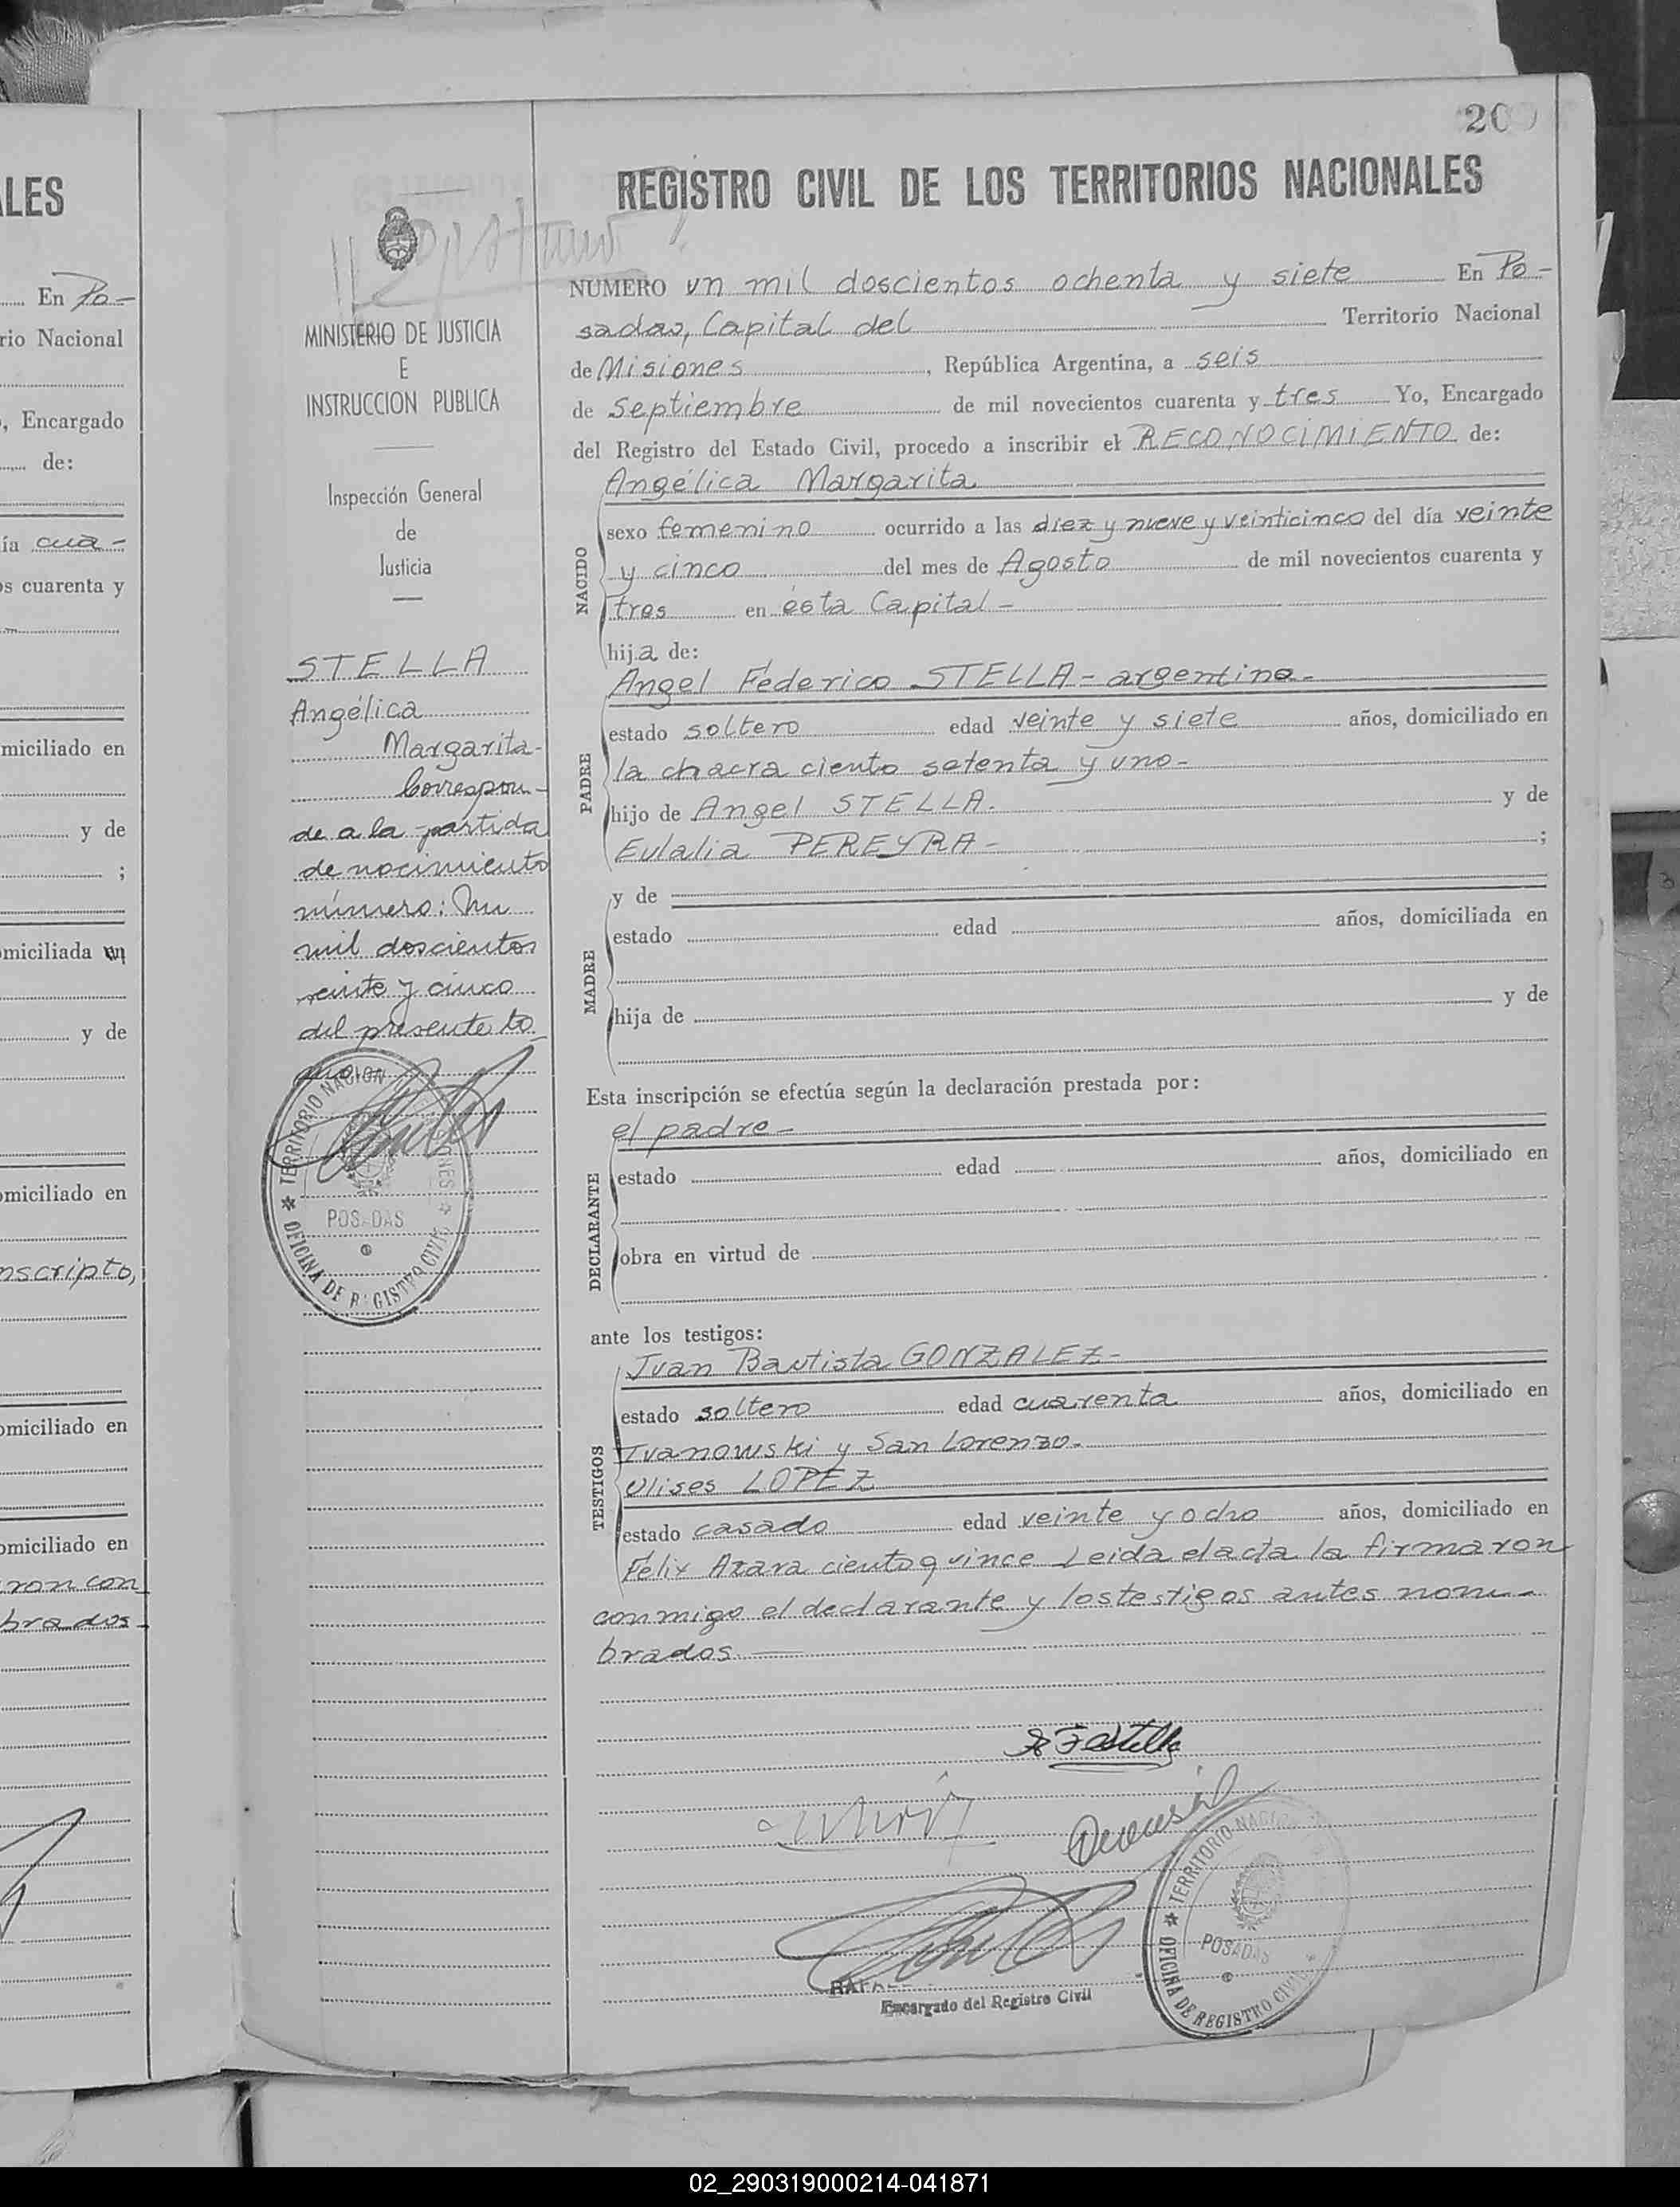 LES
En Po-
rio Nacional
, Encargado
de:
ía cua-
os cuarenta y
miciliado en
y de
;
omiciliada en
y de
omiciliado en
nscripto,
omiciliado en
omiciliado en
ron con
brados
20
REGISTRO CIVIL DE LOS TERRITORIOS NACIONALES
MINISTERIO DE JUSTICIA
E
INSTRUCCION PUBLICA
Inspección General
de
Justicia
STELLA
Angélica
Margarita-
Correspon-
de a la partida
de nacimiento
número: Un
mil doscientos
veinte y cinco
del presente to
mo.
TERRITORIO NACION
POSADAS
OFICINA DE REGISTRO CIVIL
NUMERO un mil doscientos ochenta y siete En Po-
sadas, Capital del Territorio Nacional
de Misiones, República Argentina, a seis
de Septiembre de mil novecientos cuarenta y tres Yo, Encargado
del Registro del Estado Civil, procedo a inscribir el RECONOCIMIENTO de:
Angélica Margarita
NACIDO
sexo femenino ocurrido a las diez y nueve y veinticinco del día veinte
y cinco del mes de Agosto de mil novecientos cuarenta y
tres en ésta Capital-
hija de:
PADRE
Angel Féderico STELLA-argentino-
estado soltero edad veinte y siete años, domiciliado en
la chacra ciento setenta y uno-
hijo de Angel STELLA. y de
Eulalia PEREYRA- ;
MADRE
y de
estado edad años, domiciliada en
hija de y de
Esta inscripción se efectúa según la declaración prestada por:
DECLARANTE
el padre-
estado edad años, domiciliado en
obra en virtud de
ante los testigos:
TESTIGOS
Juan Bautista GONZALEZ-
estado soltero edad cuarenta años, domiciliado en
Ivanowski y San Lorenzo-
Ulises LOPEZ
estado casado edad veinte y ocho años, domiciliado en
Félix Azara ciento quince Leida el acta la firmaron
conmigo el declarante y los testigos antes nom-
brados
TERRITORIO NACIO
POSADAS
OFICINA DE REGISTRO CIVIL
Encargado del Registro Civil
02_290319000214-041871